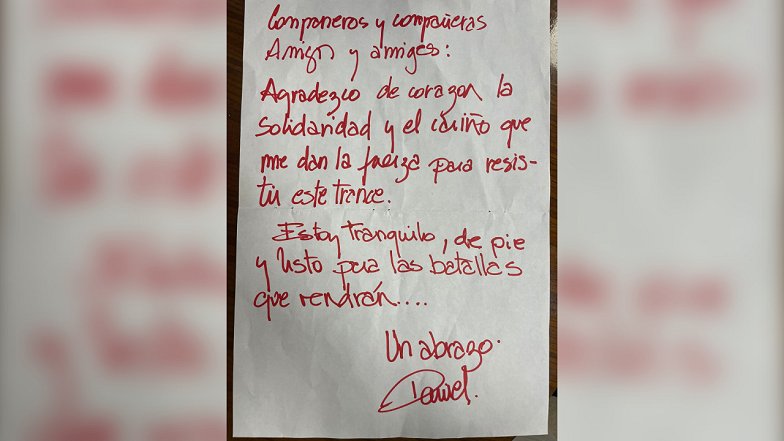 Compañeros y compañeras
Amigos y amiges:
Agradezco de corazón la
solidaridad y el cariño que
me dan la fuerza para resis-
tir este trance.
Estoy tranquilo, de pie
y listo para las batallas
que vendrán....
Un abrazo.
Daniel.